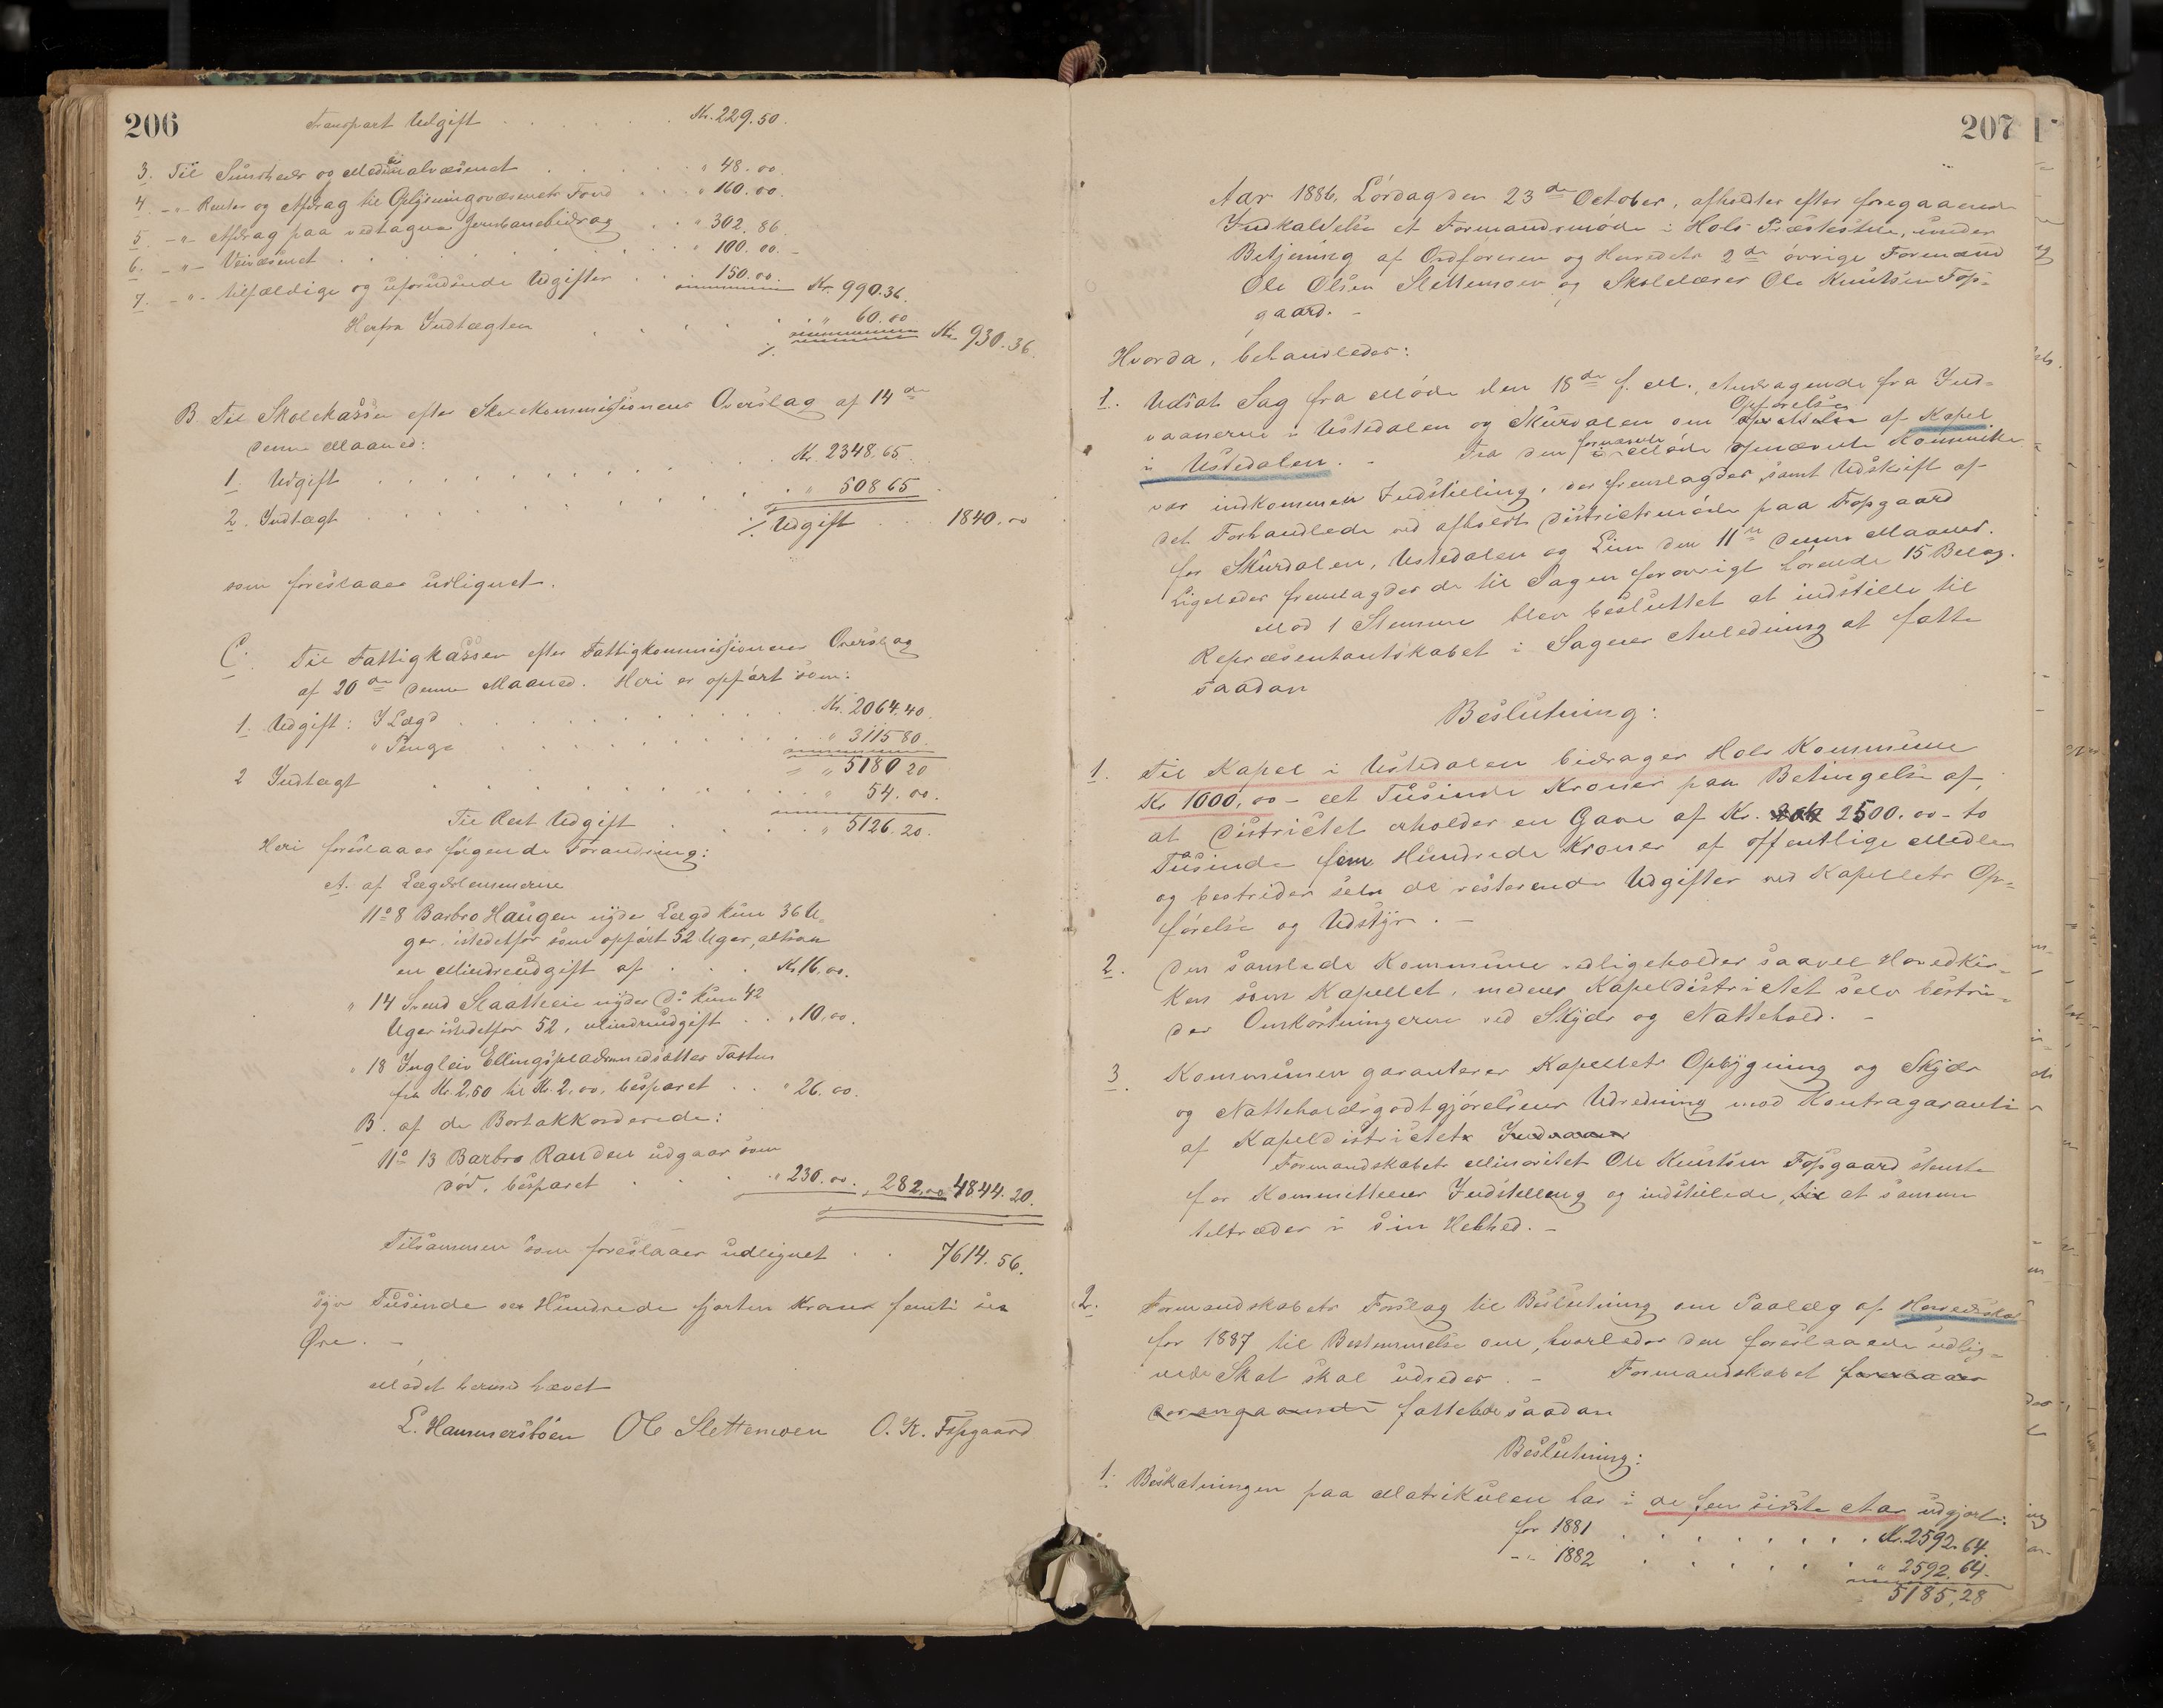 206
Transport Udgift . . . . . . Kr. 229.50.
3. Til Sundheds og Medicinalvæsenet . . . . " 48.00
4. -"- Renter og Afdrag til Oplysningsvæsenets Fond . . " 160.00.
5. -"- Afdrag paa vedtagne Jernbanebidrag . . " 302.86
6. -"- Veivæsenet . . . . . . . " 100.00. -
7. -"- tilfældige og uforudseede Udgifter . . " 150.00. Kr. 990.36.
Herfra Indtægten . . . . . " 60.00
./. Kr. 930.36.
B. Til Skolekassen efter Skolekommissionens Overslag af 14de
denne Maaned:
1. Udgift . . . . . . . . . Kr. 2348.65.
2. Indtægt . . . . . . . . . " 508 65
./. Udgift . . . 1840.00
som foreslaaes udlignet.
C. Til Fattigkassen efter Fattigkommissionens Overslag
af 20de denne Maaned. Heri er opført som:
1. Udgift: I Lægd . . . . . . . . . Kr. 2064.40.
" Penge . . . . . . . . . " 3115 80.
" 5180 20
2 Indtægt . . . . . . . . . " 54.00.
Til Rest Udgift . . . . " 5126.20.
Heri foreslaaes følgende Forandring:
A. af Lægdslemmerne
No 8 Barbro Haugen nyde Lægd kun 36 U-
ger istedetfor som opført 52 Uger, altsaa
en Mindreudgift af . . . Kr. 16.00.
" 14 Svend Slaattelie nyder Do kun 42
Uger istedetfor 52, Mindreudgift . . " 10.00.
" 18 Ingleiv Ellingsplads nedsættes Taxten
fra Kr. 2.60 til Kr. 2.00, besparet . . " 26.00.
B. af de Bortakkorderede:
No 13 Barbro Randen udgaar som
død, besparet . . . . " 230.00. " 282.00 4844.20.
Tilsammen som foreslaaes udlignet . . 7614.56.
syv Tusinde sex Hundrede fjorten Kroner femti sex
Øre. -
Mødet hermed hævet
L. Hammersbøen Ole Slettemoen O. K. Fopgaard
207
Aar 1886, Lørdag den 23de October, afholdtes efter foregaaende
Indkaldelse et Formandsmøde i Hols Præstestue, under
Betjening af Ordføreren og Herredets 2de øvrige Formænd
Ole Olsen Slettemoen og Skolelærer Ole Knutsen Fop-
gaard. -
Hvorda, behandledes:
1. Udsat Sag fra Møde den 18de f. M., Andragende fra Ind-
vaanerne i Ustedalen og Skurdalen om Opførelse af Kapel
i Ustedalen. - Fra den i Møde opnævnte Kommitte
var indkommen Indstilling, der fremlagdes, samt Udskrift af
det Forhandlede ved afholdt Districtsmøde paa Fopgaard
for Skurdalen, Ustedalen og Lien den 11te denne Maaned.
Ligeledes fremlagdes de til Sagen forøvrigt hørende 15 Bilag.
Mod 1 Stemme blev besluttet at indstille til
Repræsentantskabet i Sagens Anledning at fatte
saadan
Beslutning:
1. Til Kapel i Ustedalen bidrager Hols Kommune
Kr 1000,00 - et Tusinde Kroner paa Betingelse af,
at Districtet erholder en Gave af Kr. 2500.00 - to
Tusinde fem Hundrede Kroner af offentlige Midler
og bestrider selv de resterende Udgifter ved Kapellets Op-
førelse og Udstyr. -
2. Den samlede Kommune vedligeholder saavel Hovedkir-
ken som Kapellet, medens Kapeldistrictet selv bestri-
der Omkostningerne ved Skyds og Nattehold. -
3 Kommunen garanterer Kapellets Opbygning og Skyds
og Natteholdsgodtgjørelsens Udredning mod Kontragaranti
af Kapeldistrictets Indvaaner
Formandskabets Minoritet Ole Knutsen Fopgaard stemte
for Kommitteens Indstilling og indstillede, til at samme
tiltrædes i sin Helhed. -
2. Formandskabets Forslag til Beslutning om Paalæg af Herredsskat
for 1887 til Bestemmelse om, hvorledes den foreslaaede udlig-
nede Skat skal udredes. - Formandskabet foreslaaer
derangaaende fattede saadan
Beslutning:
1. Beskatningen paa Matrikulen har i de fem sidste Aar udgjort:
for 1881 . . . . . . . . . Kr. 2592.64.
-"- 1882 . . . . . . . " 2592.64.
5185,28